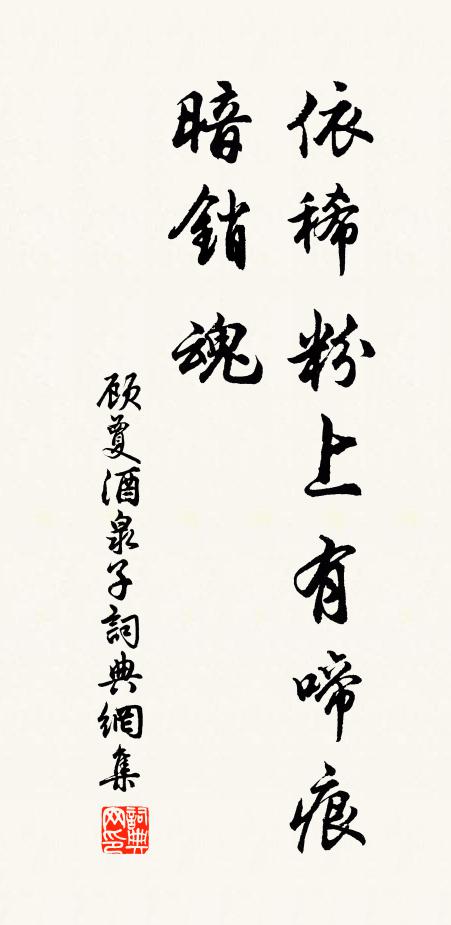 依稀粉上有啼痕
暗銷魂
顾敻酒泉子詞典網集
詞典网印